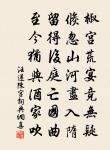 椒宮荒宴竟無疑
倏忽山河盡入隋
留得後庭亡國曲
至今猶與酒家吹
法運陳宮詞典網專